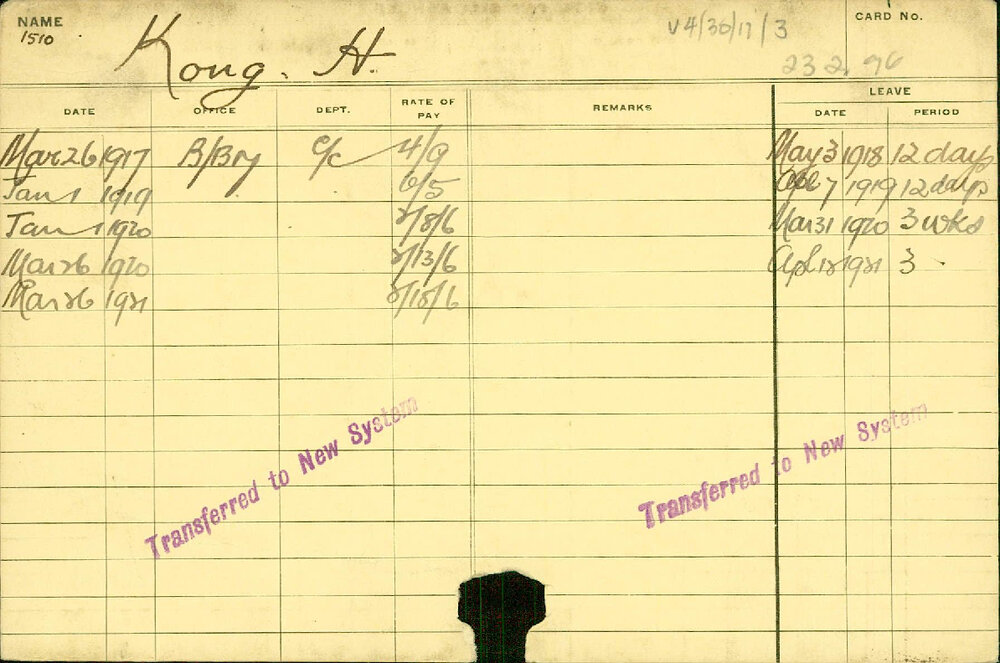 NAME CARD No.
1510 Kong. H. V4/36/17/3
23 2. 96
LEAVE
DATE OFFICE DEPT. RATE OF PAY REMARKS DATE PERIOD
Mar 26 1917 B/Bry C/C 4/9 May 3 1918 12 days
Jan 1 1919 6/5 7 1919 12 days
Jan 1 1920 /8/6 Mar 31 1920 3 wks
Mar 26 1920 /13/6 Apl 12 1921 3 "
Mar 26 1921 /18/6
Transferred to New System Transferred to New System